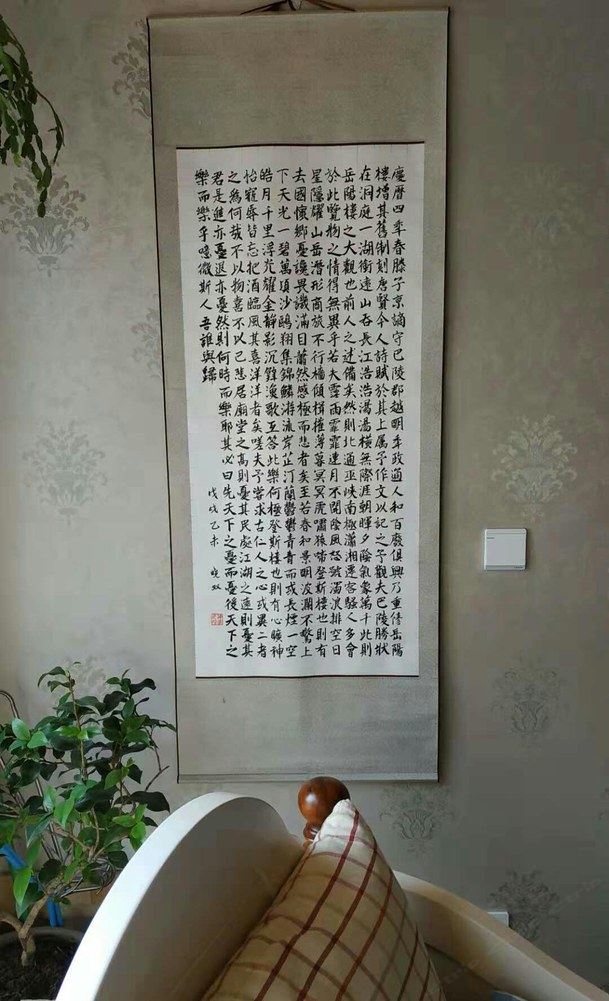 慶曆四年春滕子京謫守巴陵郡越明年政通人和百廢俱興乃重修岳陽
樓增其舊制刻唐賢今人詩賦於其上屬予作文以記之予觀夫巴陵勝狀
在洞庭一湖銜遠山吞長江浩浩湯湯橫無際涯朝暉夕陰氣象萬千此則
岳陽樓之大觀也前人之述備矣然則北通巫峽南極瀟湘遷客騷人多會
於此覽物之情得無異乎若夫霪雨霏霏連月不開陰風怒號濁浪排空日
星隱耀山岳潛形商旅不行檣傾楫摧薄暮冥冥虎嘯猿啼登斯樓也則有
去國懷鄉憂讒畏譏滿目蕭然感極而悲者矣至若春和景明波瀾不驚上
下天光一碧萬頃沙鷗翔集錦鱗游泳岸芷汀蘭鬱鬱青青而或長煙一空
皓月千里浮光耀金靜影沉璧漁歌互答此樂何極登斯樓也則有心曠神
怡寵辱皆忘把酒臨風其喜洋洋者矣嗟夫予嘗求古仁人之心或異二者
之為何哉不以物喜不以己悲居廟堂之高則憂其民處江湖之遠則憂其
君是進亦憂退亦憂然則何時而樂耶其必曰先天下之憂而憂後天下之
樂而樂乎噫微斯人吾誰與歸
戊戌乙未 晓双